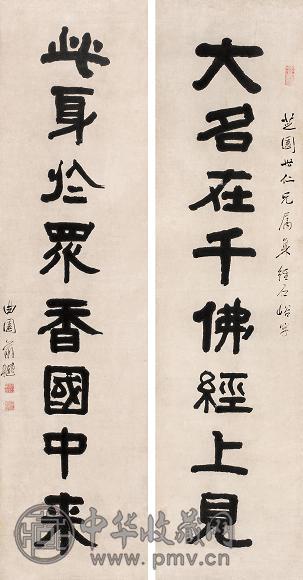 芝園世仁兄属集經石峪字
大名在千佛經上見
此身於眾香國中來
曲園俞樾
中华收藏网
www.pmv.cn